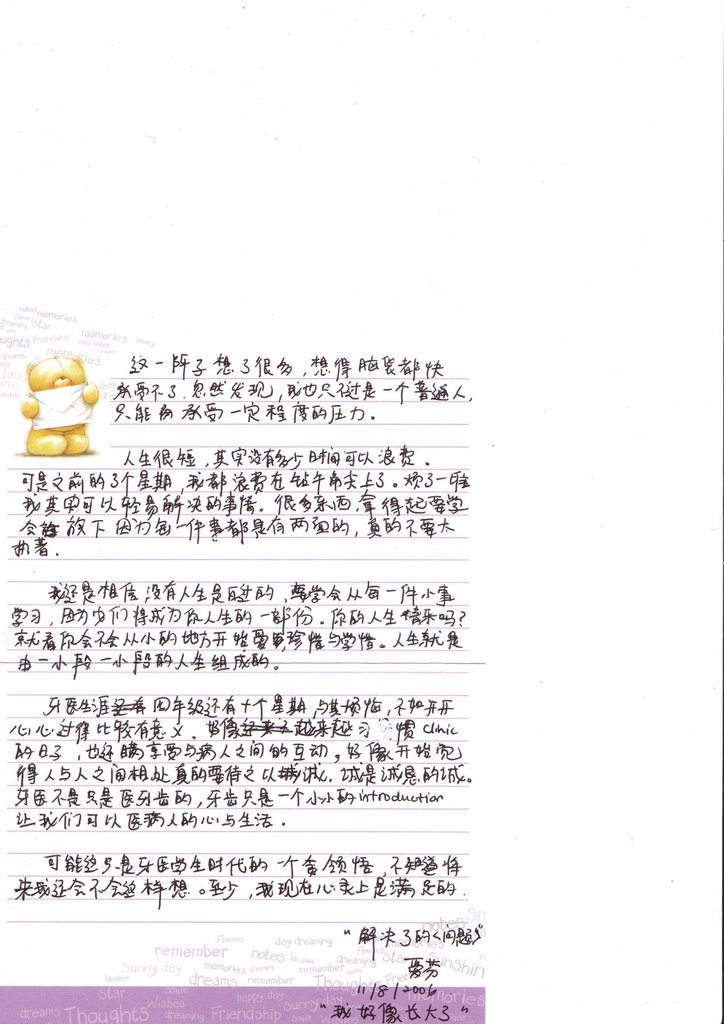 这一阵子想了很多，想得脑袋都快
承受不了。忽然发现，我也只不过是一个普通人，
只能承受一定程度的压力。
人生很短，其实没有多少时间可以浪费。
可是之前的3个星期，我都浪费在钻牛角尖上了。烦了一堆
我其实可以轻易解决的事情。很多东西，拿得起要学
会放下 因为每一件事都是有两面的，真的不要太
执著.
我还是相信没有人生是白过的，要学会从每一件小事
学习，因为它们将成为你人生的一部份。你的人生精采吗？
就看你会不会从小的地方开始要珍惜与学惜。人生就是
由一小段一小段的人生组成的。
牙医生涯四年级还有十个星期，与其烦恼，不如开开
心心过得比较有意义. 好像越来越习惯 clinic
的日子，也还瞒享受与病人之间的互动。好像开始觉
得人与人之间相处真的要待之以诚，诚是诚恳的诚。
牙医不是只是医牙齿的，牙齿只是一个小小的introduction
让我们可以医病人的心与生活.
可能这只是牙医学生时代的一个领悟，不知道将
来我还会不会这样想。至少，我现在心灵上是满足的.
"解决了的<问题>"
11/8/2006
"我好像长大了"
notes memories
Star
memories
Friendship
memories
Flowers
day dreaming
remember
notes
Sunny day
memories
dreams
remember
star
Wishes
happy day
Smile
dreams
Thoughts
Friendship
Sunny day
memories